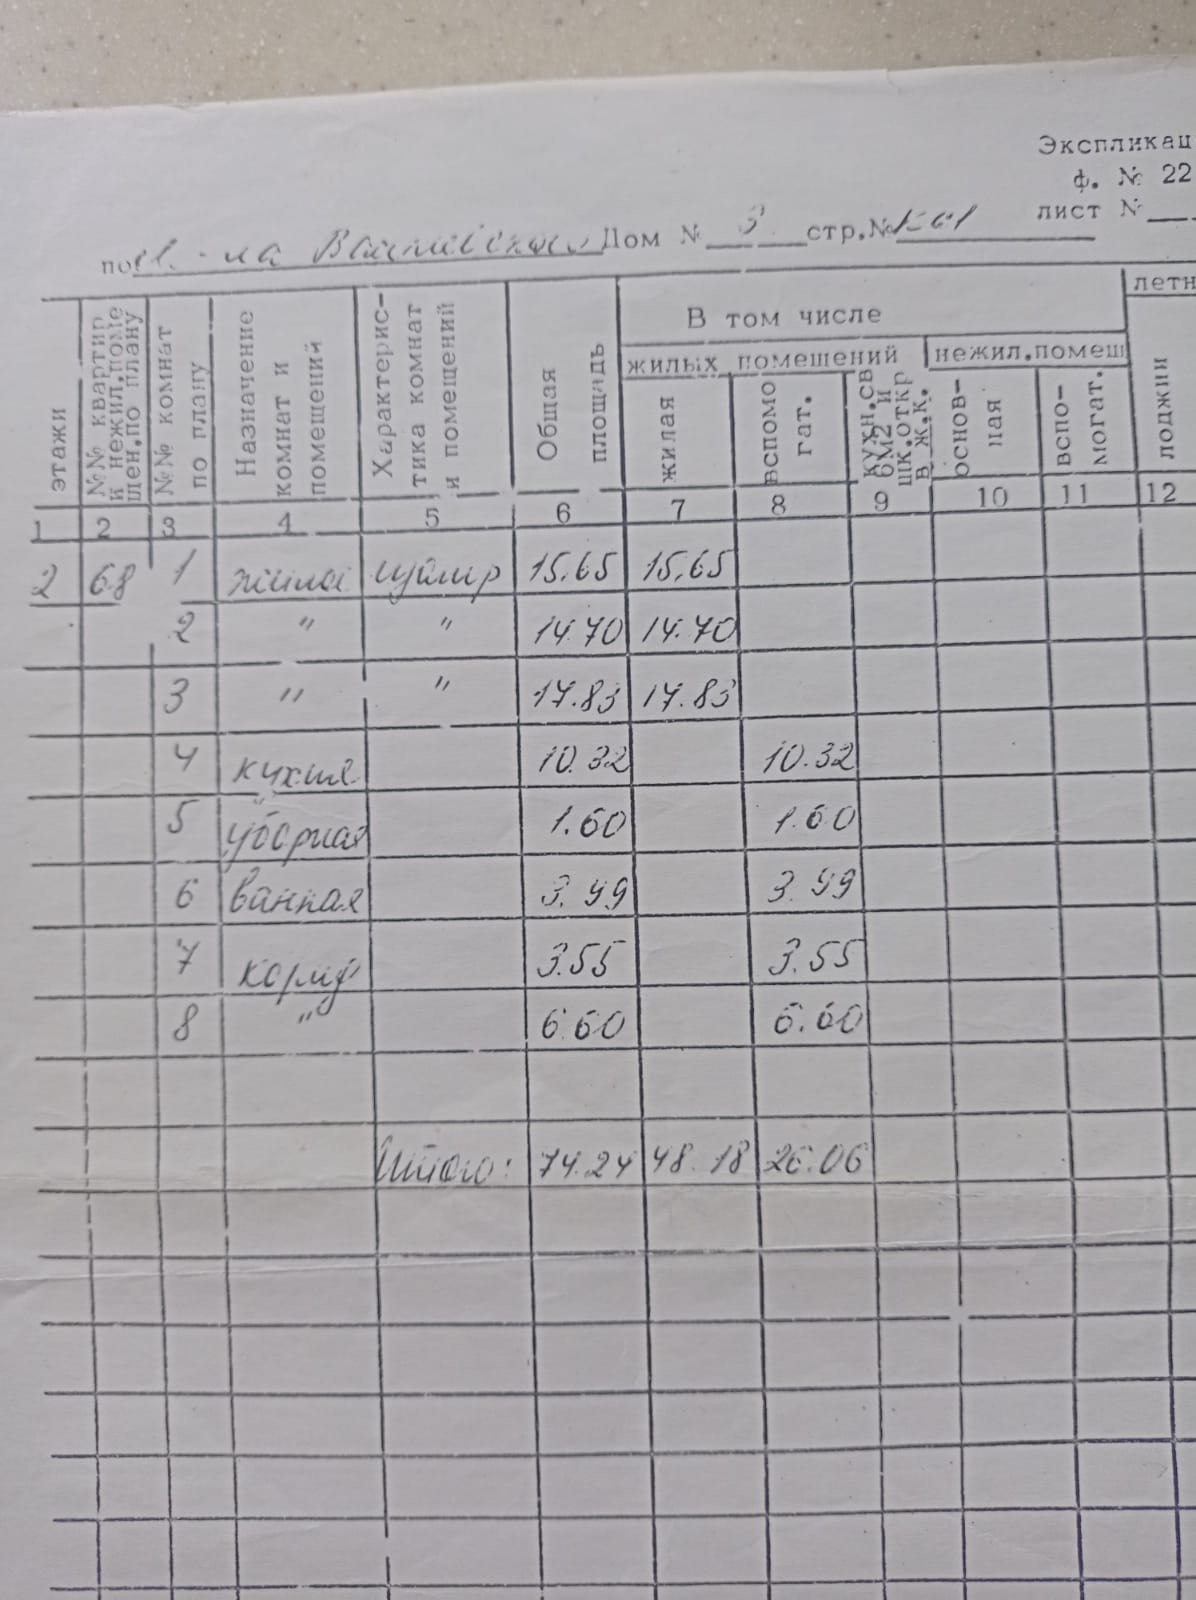 Экспликац
ф. № 22
лист №
по Дом № 3 стр.№
этажи
№№ квартир и нежил.поме щен.по плану
№№ комнат по плану
Назначение комнат и помещений
Характерис-тика комнат и помещений
Общая площадь
В том числе
летн
жилых помещений
нежил.помещ
жилая
вспомо гат.
кухн.св 8м2 и шк.откр в ж.к.
основ-ная
вспо-могат.
лоджии
1 2 3 4 5 6 7 8 9 10 11 12
2 68 1 жилая 15.65 15.65
2 " " 14.70 14.70
3 " " 17.83 17.83
4 кухня 10.32 10.32
5 уборная 1.60 1.60
6 ванная 3.99 3.99
7 корид 3.55 3.55
8 " 6.60 6.60
Итого: 74.24 48.18 26.06